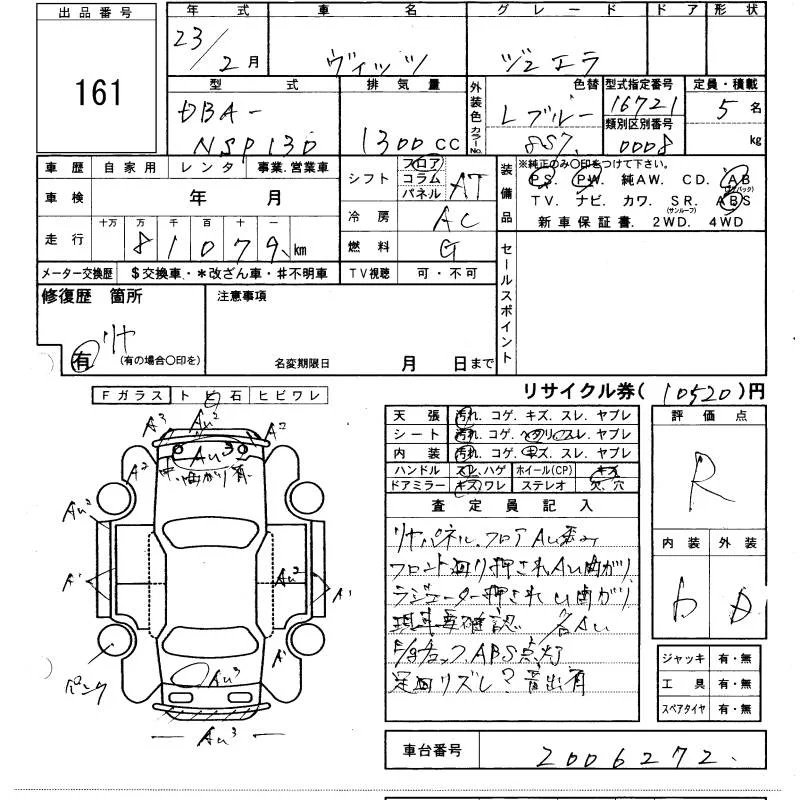 出品番号
161
年式 車名 グレード ドア 形状
23/2月 ヴィッツ ジュエラ
型式 排気量 外装色 カラーNo. 色替 型式指定番号 定員・積載
DBA- Lブルー 16721 5名
NSP130 1300CC 8S7 類別区別番号
0008 kg
車歴 自家用 レンタ 事業.営業車
車検 年 月
走行 十万 万 千 百 十 一
81079 km
メーター交換歴 $交換車・*改ざん車・#不明車
シフト フロア コラム パネル AT
冷房 AC
燃料 G
TV視聴 可・不可
装備品 ※純正のみ〇印をつけて下さい。
PS. PW. 純AW. CD. AB(エアバック)
TV. ナビ. カワ. SR.(サンルーフ) ABS
新車保証書. 2WD. 4WD
セールスポイント
修復歴 箇所
リヤ
有 (有の場合〇印を)
注意事項
名変期限日 月 日まで
リサイクル券( 10520 )円
Fガラス トビ石 ヒビワレ
A3 Au2 A2
A2 Au3
曲がり有
Au2
A1 Au2 A1
A1
パンク Au3
← Au3 →
天張 汚れ. コゲ. キズ. スレ. ヤブレ
シート 汚れ. コゲ. ヘタリ. スレ. ヤブレ
内装 汚れ. コゲ. キズ. スレ. ヤブレ
ハンドル スレ.ハゲ ホイール(CP) キズ
ドアミラー キズ.ワレ ステレオ 欠.穴
査定員記入
リヤパネル.フロアAu歪み
フロント廻り押されAu曲がり
ラジエーター押されU曲がり
現車要確認 各Au
ABS点灯
足廻りズレ?音出有
評価点
R
内装 外装
b D
ジャッキ 有・無
工具 有・無
スペアタイヤ 有・無
車台番号 2006272.